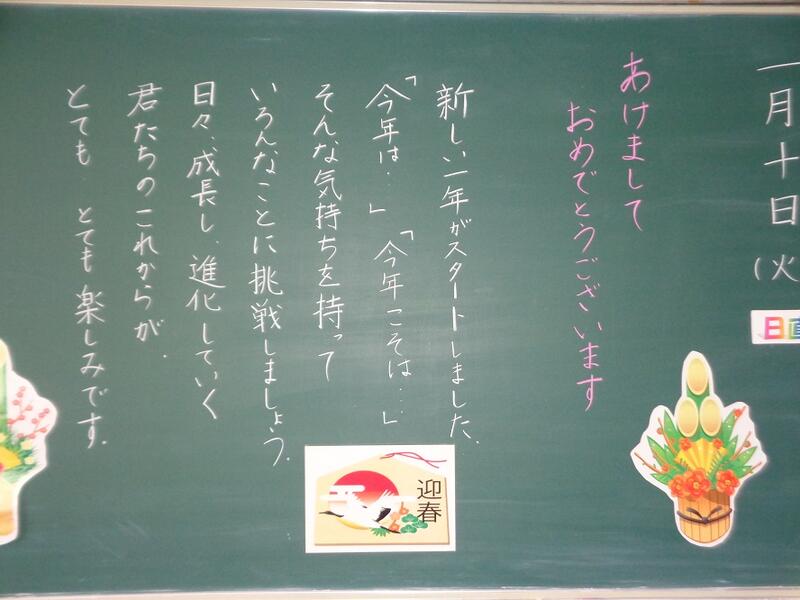 一月十日(火
日直
あけまして
おめでとうございます
新しい一年がスタートしました.
「今年は…」「今年こそは…」
そんな気持ちを持って
いろんなことに挑戦しましょう.
日々、成長し、進化していく
君たちのこれからが.
とても とても楽しみです.
迎春